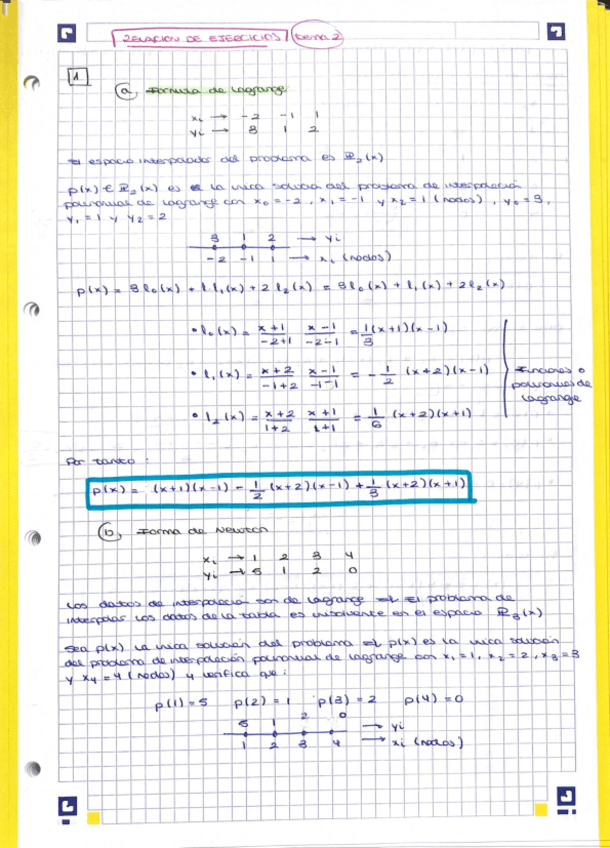 RELACIÓN DE EJERCICIOS tema 2
1
a, Fórmula de Lagrange
xi → -2 -1 1
yi → 3 1 2
El espacio interpolador del problema es P₂(x)
p(x) ∈ P₂(x) es la única solución del problema de interpolación
polinomial de Lagrange con x₀ = -2, x₁ = -1 y x₂ = 1 (nodos), y₀ = 3,
y₁ = 1 y y₂ = 2
3 1 2 → yi
-2 -1 1 → xi (nodos)
p(x) = 3 l₀(x) + 1·l₁(x) + 2 l₂(x) = 3l₀(x) + l₁(x) + 2l₂(x)
• l₀(x) = (x+1)/(-2+1) (x-1)/(-2-1) = 1/3 (x+1)(x-1)
• l₁(x) = (x+2)/(-1+2) (x-1)/(-1-1) = -1/2 (x+2)(x-1)
Funciones o
polinomios de
Lagrange
• l₂(x) = (x+2)/(1+2) (x+1)/(1+1) = 1/6 (x+2)(x+1)
Por tanto:
p(x) = (x+1)(x-1) - 1/2 (x+2)(x-1) + 1/3 (x+2)(x+1)
b, Forma de Newton
xi → 1 2 3 4
yi → 5 1 2 0
Los datos de interpolación son de Lagrange ⇒ El problema de
interpolar los datos de la tabla es unisolvente en el espacio P₃(x)
Sea p(x) la única solución del problema ⇒ p(x) es la única solución
del problema de interpolación polinomial de Lagrange con x₁ = 1, x₂ = 2, x₃ = 3
y x₄ = 4 (nodos) y verifica que:
p(1) = 5 p(2) = 1 p(3) = 2 p(4) = 0
5 1 2 0 → yi
1 2 3 4 → xi (nodos)